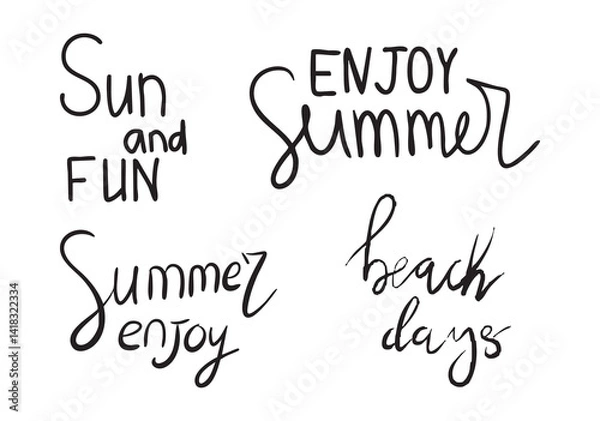 Sun
and
FUN
ENJOY
Summer
Summer
enjoy
beach
days
Adobe Stock | #1418322334
Adobe Stock